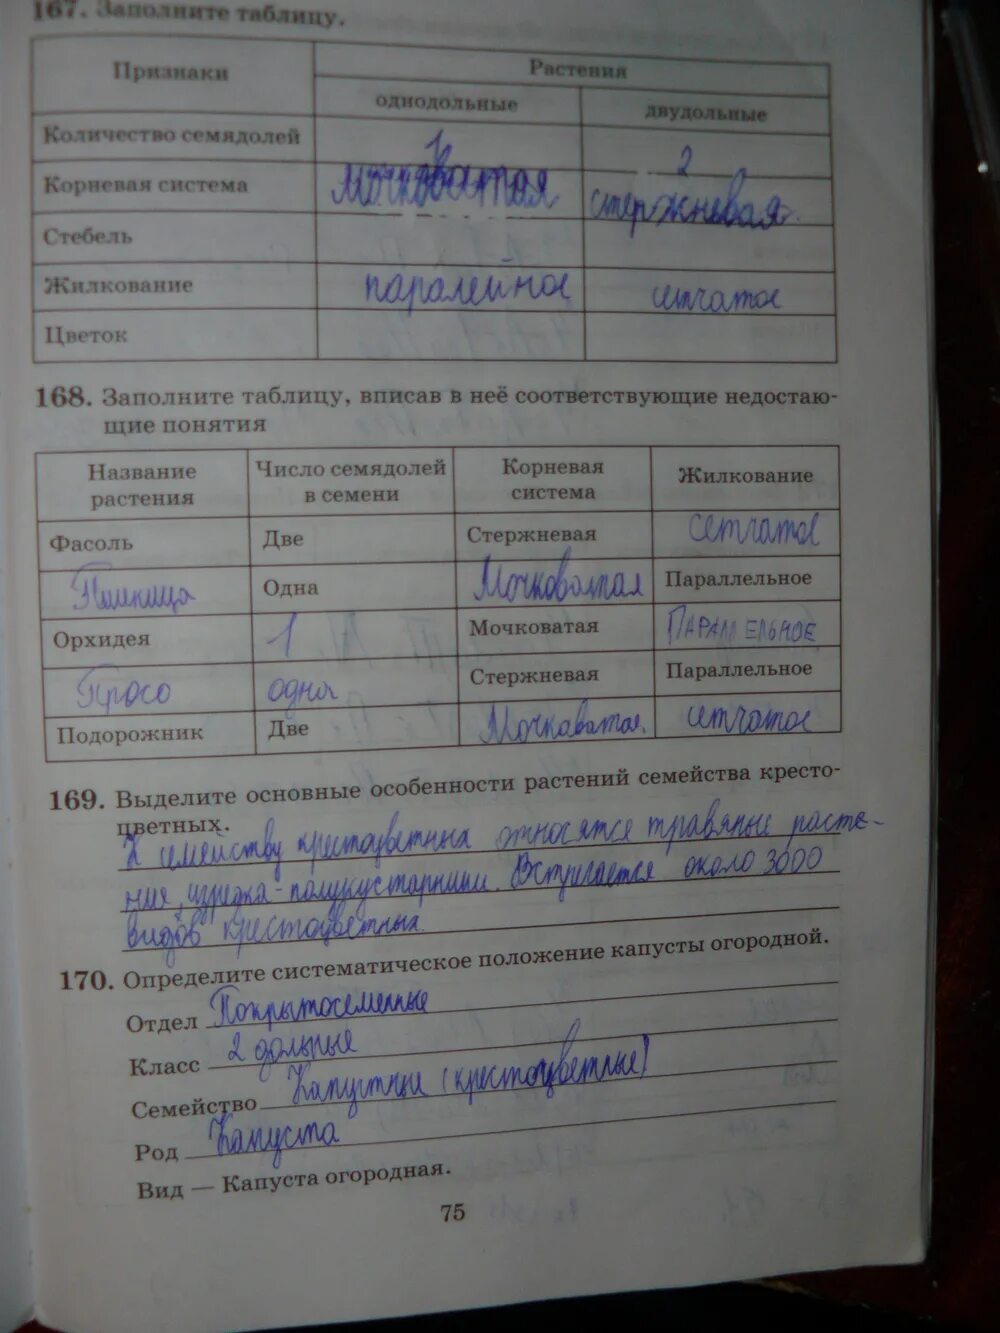 167. Заполните таблицу.
Признаки Растения
однодольные двудольные
Количество семядолей 1 2
Корневая система мочковатая стержневая
Стебель
Жилкование паралейное сетчатое
Цветок
168. Заполните таблицу, вписав в неё соответствующие недостаю-
щие понятия
Название растения Число семядолей в семени Корневая система Жилкование
Фасоль Две Стержневая сетчатое
Пшеница Одна Мочковатая Параллельное
Орхидея 1 Мочковатая ПАРАЛЛЕЛЬНОЕ
Просо одна Стержневая Параллельное
Подорожник Две Мочковатая. сетчатое
169. Выделите основные особенности растений семейства кресто-
цветных.
К семейству крестоцветных относятся травяные расте-
ния, изредка - полукустарники. Встречается около 3000
видов крестоцветных.
170. Определите систематическое положение капусты огородной.
Отдел Покрытосеменные
Класс 2 дольные
Семейство Капустные (крестоцветные)
Род Капуста
Вид — Капуста огородная.
75